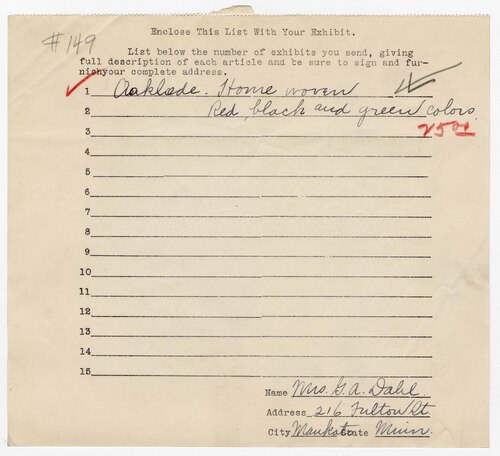 #149
Enclose This List With Your Exhibit.
List below the number of exhibits you send, giving
full description of each article and be sure to sign and fur-
nishyour complete address.
1 Aaklæde. Home woven
2 Red, black and green colors
3
4
5
6
7
8
9
10
11
12
13
14
15
Name Mrs. G. A. Dahl.
Address 216 Fulton St.
City Mankato State Minn.